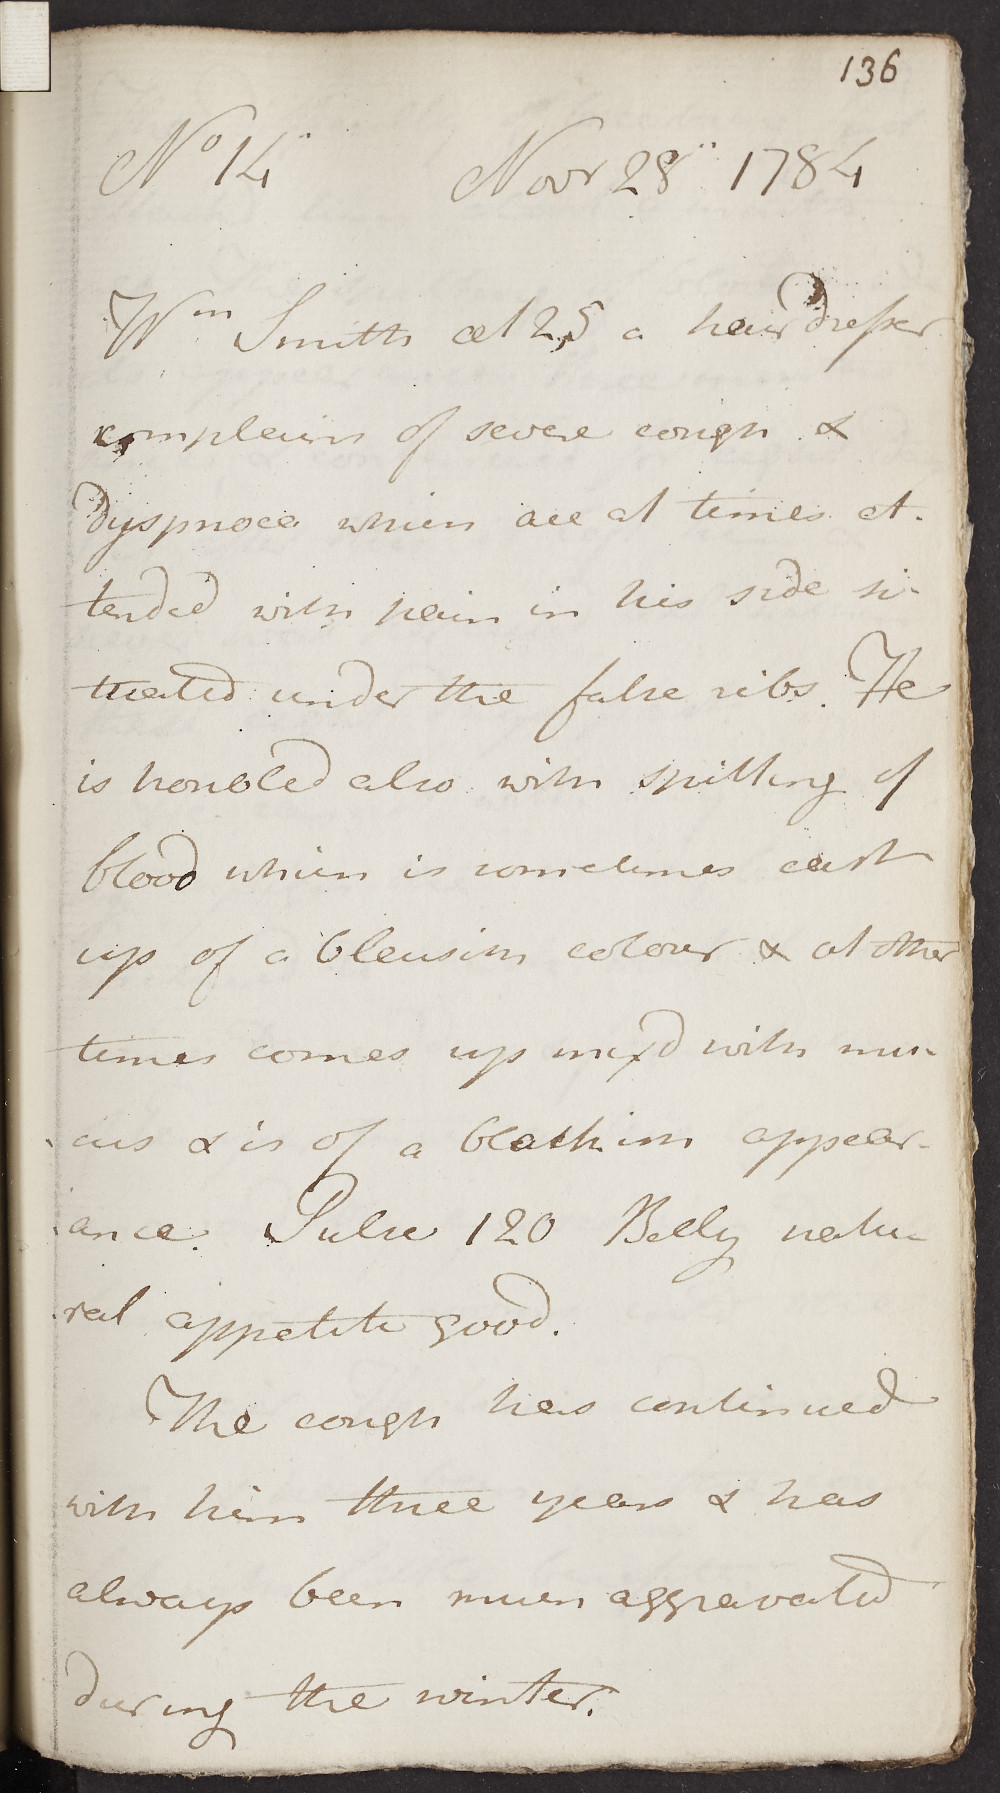 136
No 14 Novr 28 1784
Wm Smith aet 25 a hairdresser
complains of severe cough &
dyspnoea which are at times at-
tended with pain in his side si-
tuated under the false ribs. He
is troubled also with spitting of
blood which is sometimes cast
up of a bleuish colour & at other
times comes up mixd with mu-
cus & is of a blackish appear-
ance. Pulse 120 Belly natu-
ral appetite good.
The cough has continued
with him three years & has
always been much aggravated
during the winter.